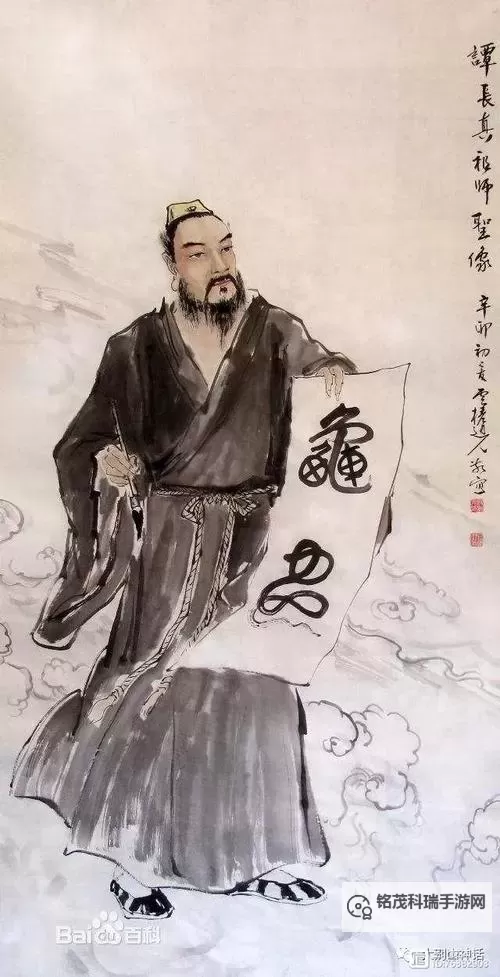 譚長真祖師聖像
辛卯初夏
道人
龜
蛇
Bai du 百科
铭茂科瑞手游网